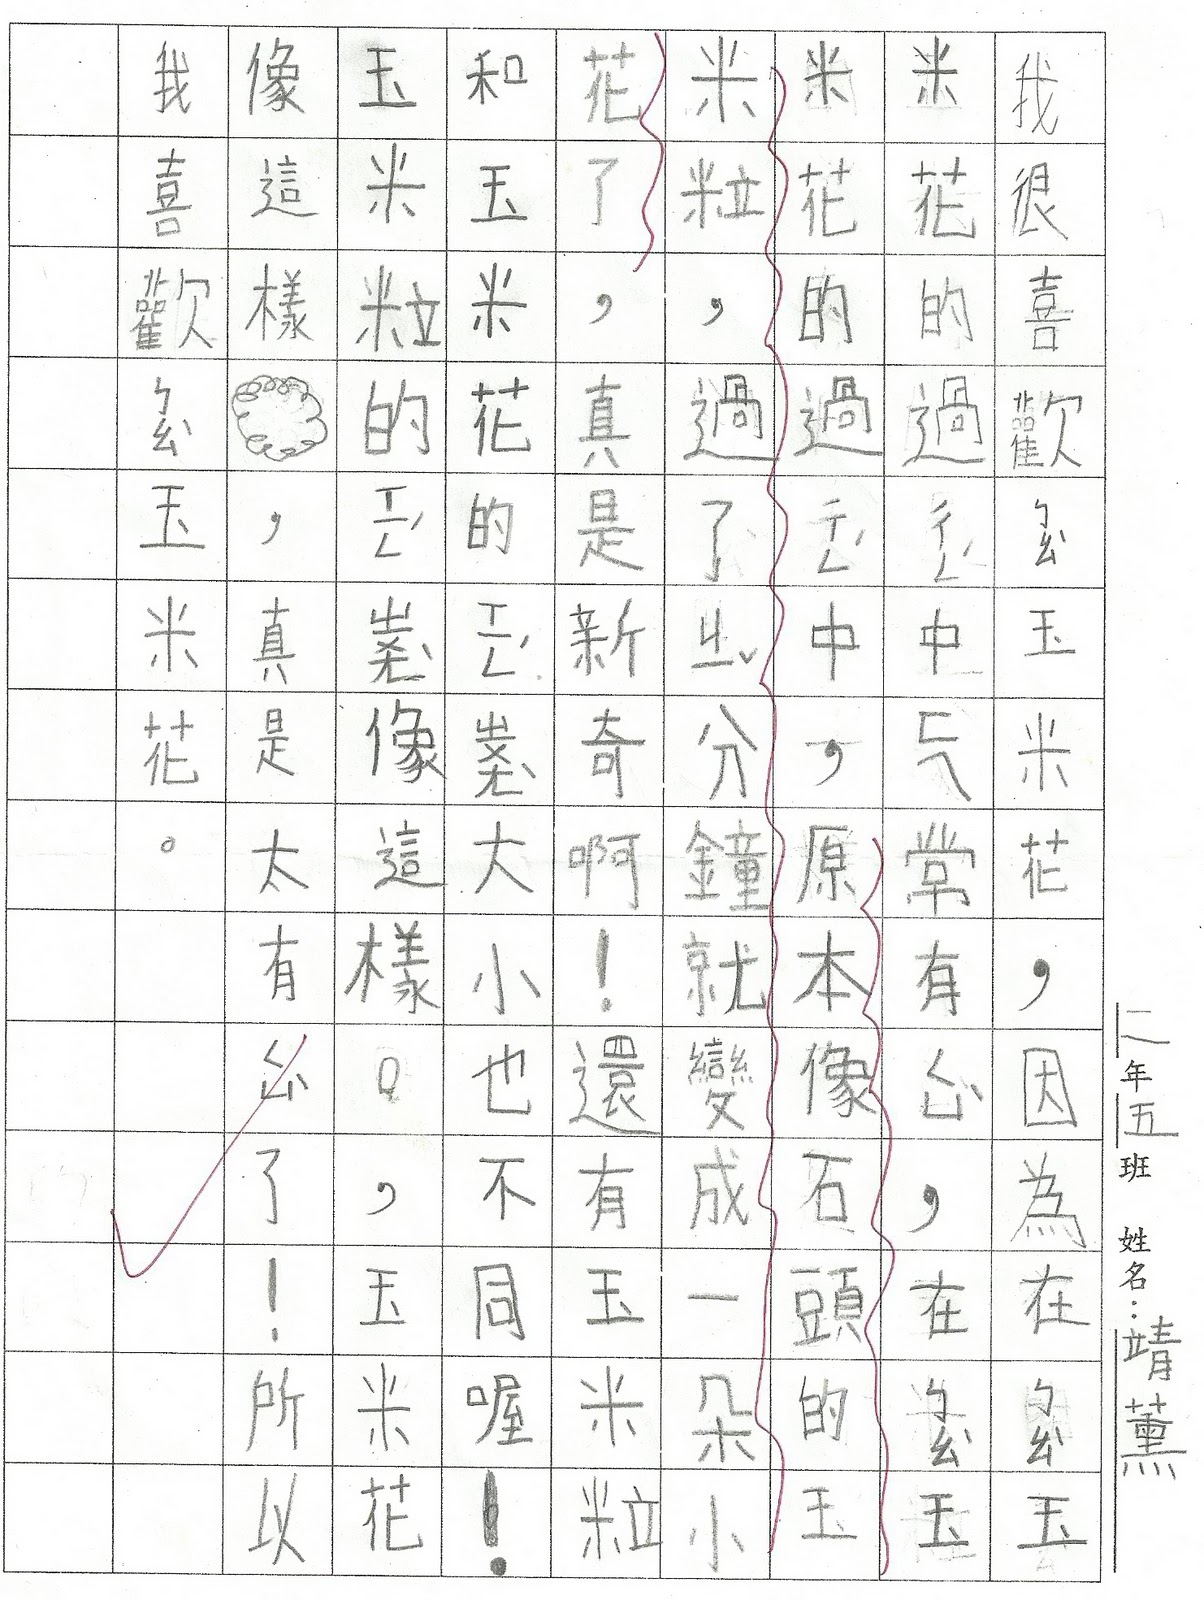 二年五班 姓名：靖薰
我很喜歡ㄅㄠ玉米花，因為在ㄅㄠ玉
米花的過ㄔㄥˊ中ㄈㄟ常有ㄑㄩˋ，在ㄅㄠ玉
米花的過ㄔㄥˊ中，原本像石頭的玉
米粒，過了ㄐㄧˇ分鐘就變成一朵小
花了，真是新奇啊！還有玉米粒
和玉米花的ㄒㄧㄥˊㄓㄨㄤˋ大小也不同喔！
玉米粒的ㄒㄧㄥˊㄓㄨㄤˋ像這樣，玉米花
像這樣，真是太有ㄑㄩˋ了！所以
我喜歡ㄅㄠ玉米花。